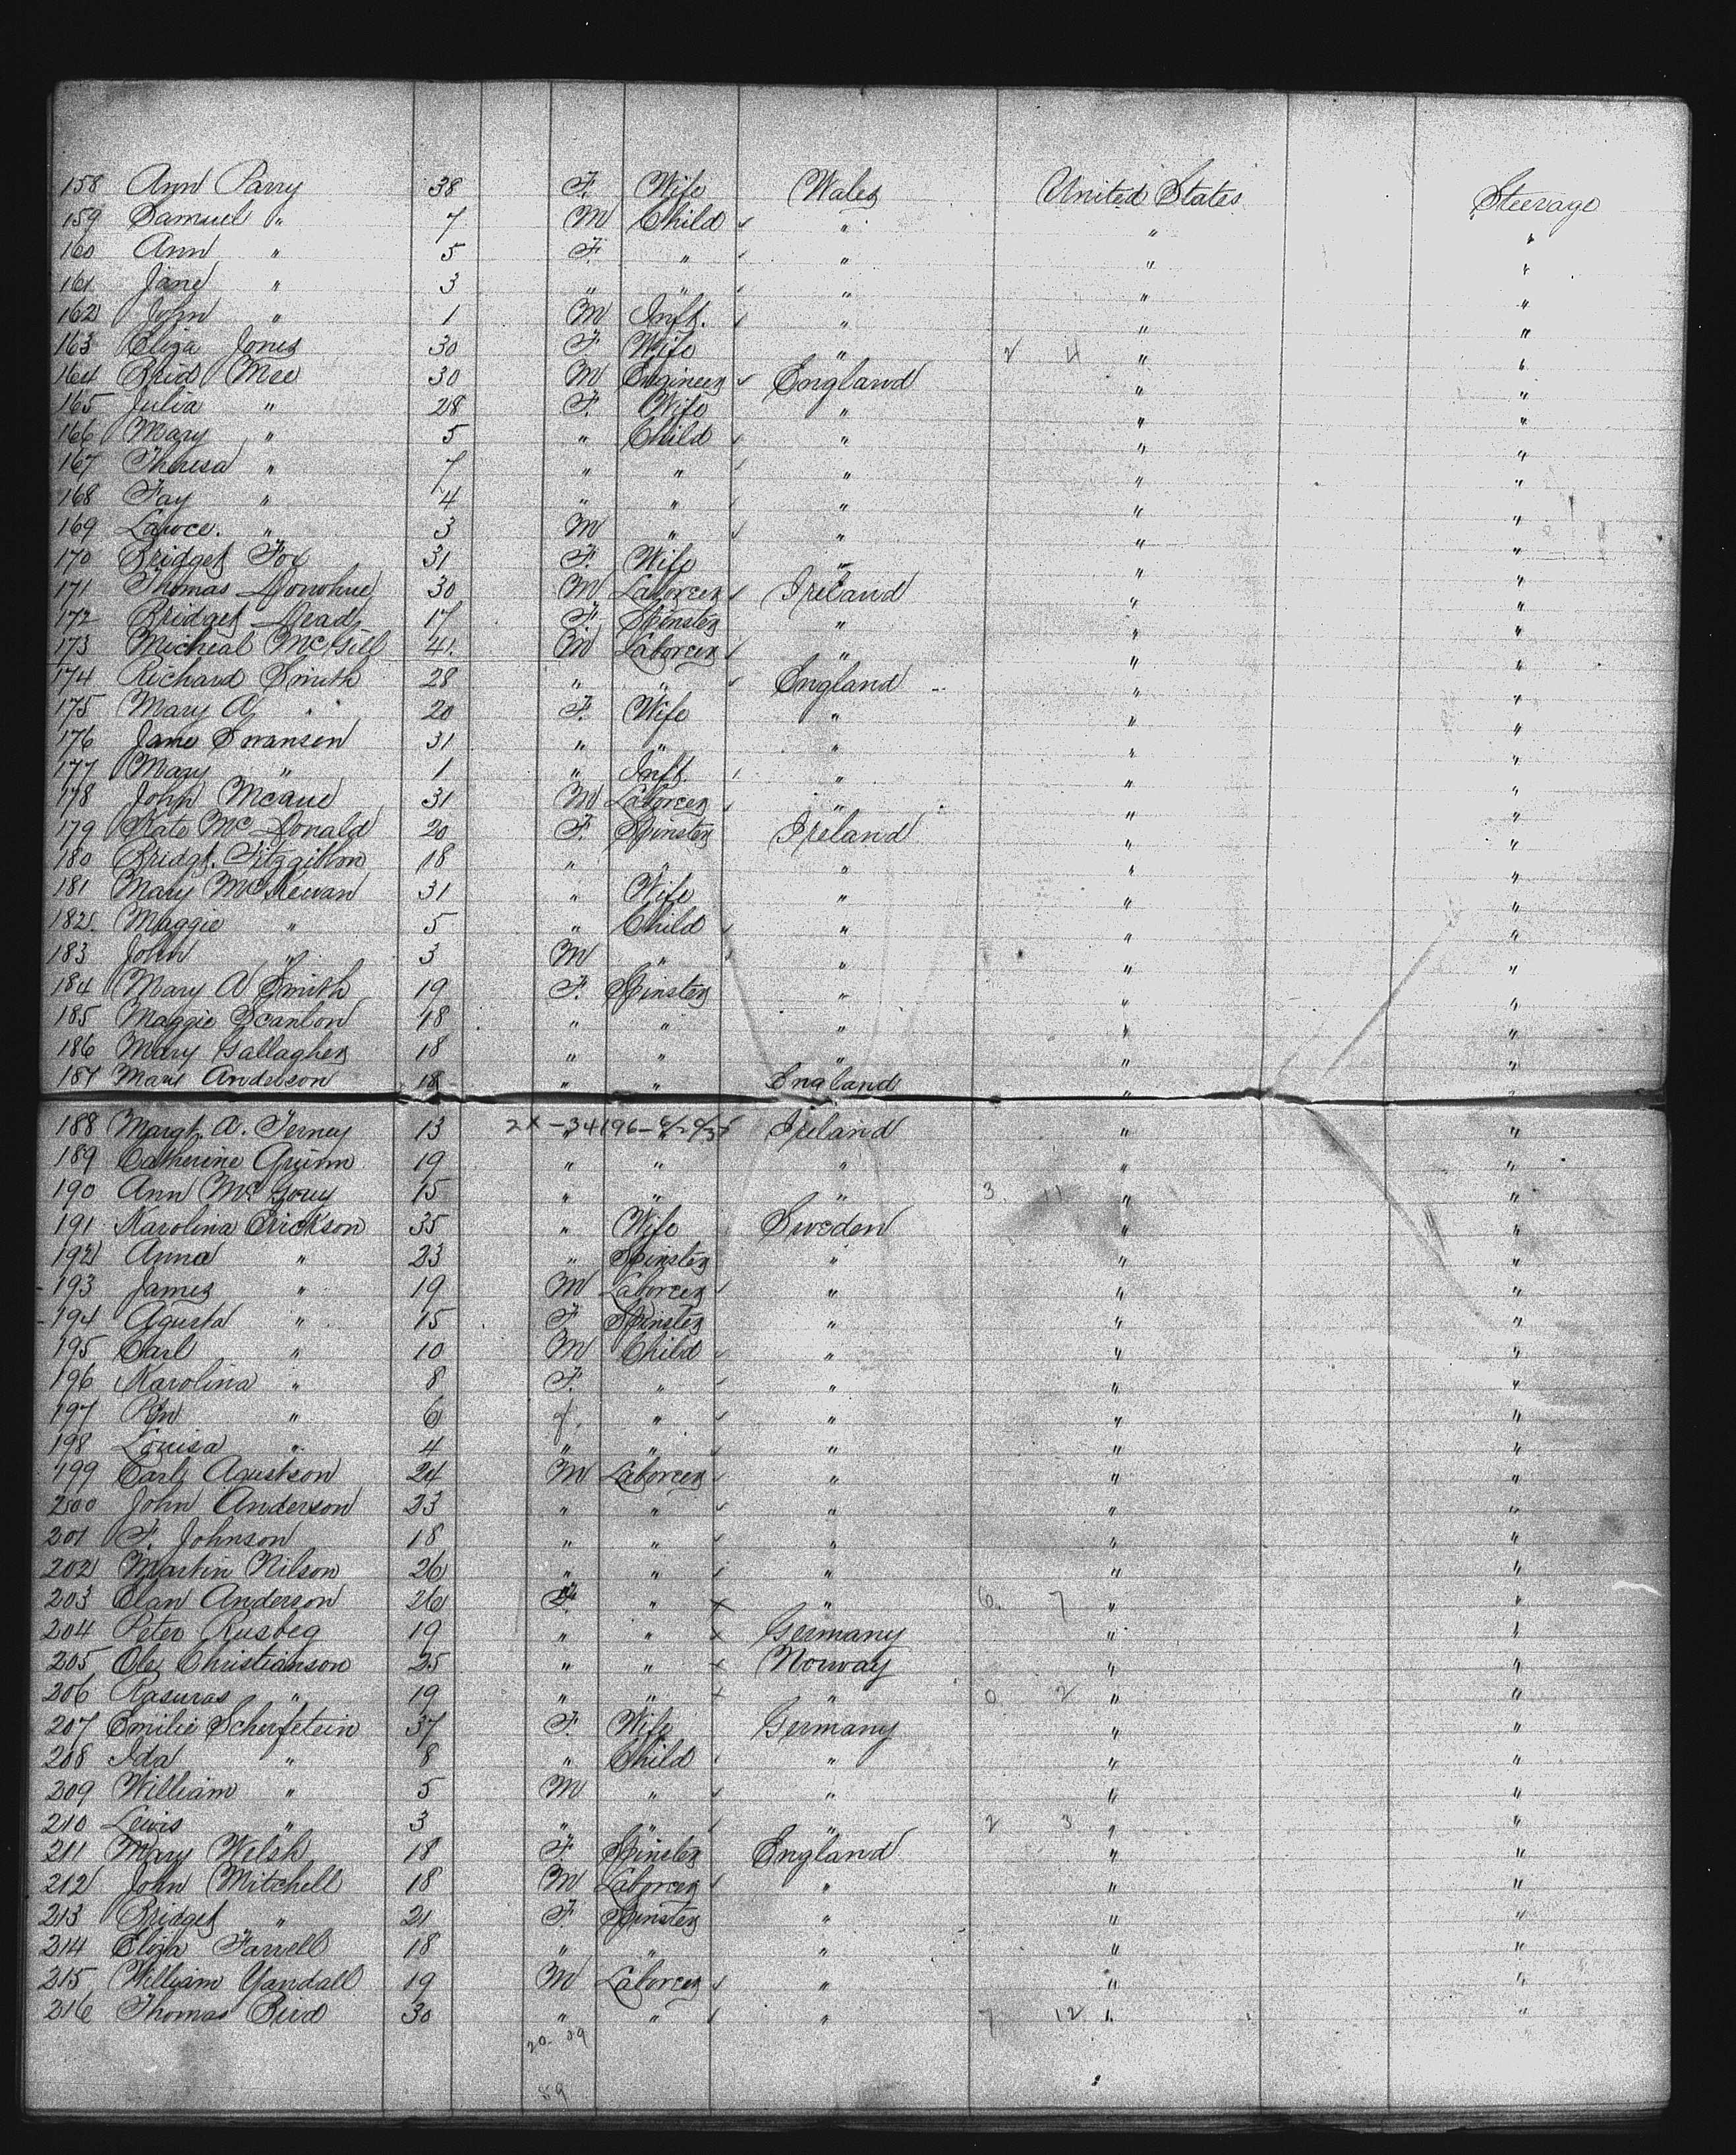 158 Ann Parry 38 F. Wife Wales United States Steerage
159 Samuel " 7 M Child " " "
160 Ann " 5 F. " " " "
161 Jane " 3 " " " " "
162 John " 1 M Inft. " " "
163 Eliza Jones 30 F Wife " 2 4 " "
164 Mee 30 M Engineer England " "
165 Julia " 28 F. Wife " " "
166 Mary " 5 " Child " " "
167 Theresa " 7 " " " " "
168 Fay " 4 " " " " "
169 Lawce. " 3 M " " " "
170 Bridget Fox 31 F. Wife " " "
171 Thomas Donohue 30 M Laborer Ireland " "
172 Bridget Deady 17 F. Spinster " " "
173 Micheal McGill 41. M Laborer " " "
174 Richard Smith 28 " " England " "
175 Mary A " 20 F. Wife " " "
176 Jane Swansen 31 " " " " "
177 Mary " 1 " Inft. " " "
178 John Mcaue 31 M Laborer " " "
179 Kate McDonald 20 F. Spinster Ireland " "
180 Bridgt. Fitzgibbon 18 " " " " "
181 Mary 31 " Wife " " "
182. Maggie " 5 " Child " " "
183 John " 3 M " " " "
184 Mary A Smith 19 F. Spinster " " "
185 Maggie Scanlon 18 " " " " "
186 Mary Gallagher 18 " " " " "
187 Mary Anderson 18 " " England "
188 Margt. A. Terney 13 2X-34196- Ireland " "
189 Catherine Quinn 19 " " " " "
190 Ann McGouy 15 " " " 3 11 " "
191 Karolina Erickson 35 " Wife Sweden " "
192 Anna " 23 " Spinster " " "
193 James " 19 M Laborer " " "
194 Agusta " 15 F Spinster " " "
195 Carl " 10 M Child " " "
196 Karolina " 8 F. " " " "
197 " 6 f. " " " "
198 Louisa " 4 " " " " "
199 Carl Agustson 24 M Laborer " " "
200 John Anderson 23 " " " " "
201 F. Johnson 18 " " " " "
202 Martin Nilson 26 " " " " "
203 Elan Anderson 26 " x " 6. 7 " "
204 Peter Rusbeg 19 " " x Germany " "
205 Ole Christianson 25 " " x Norway " "
206 Rasuras " 19 " " x " 0 2 " "
207 Emilie Scherfetein 37 F. Wife Germany " "
208 Ida " 8 " Child " " "
209 William " 5 M " " " "
210 Lewis " 3 " " " 2 3 " "
211 Mary Welsh 18 F. Spinster England " "
212 John Mitchell 18 M Laborer " " "
213 Bridget " 21 F. Spinster " " "
214 Eliza Farrell 18 " " " " "
215 William Yandall 19 M Laborer " " "
216 Thomas 30 " " " 7 12 " "
20 89
89